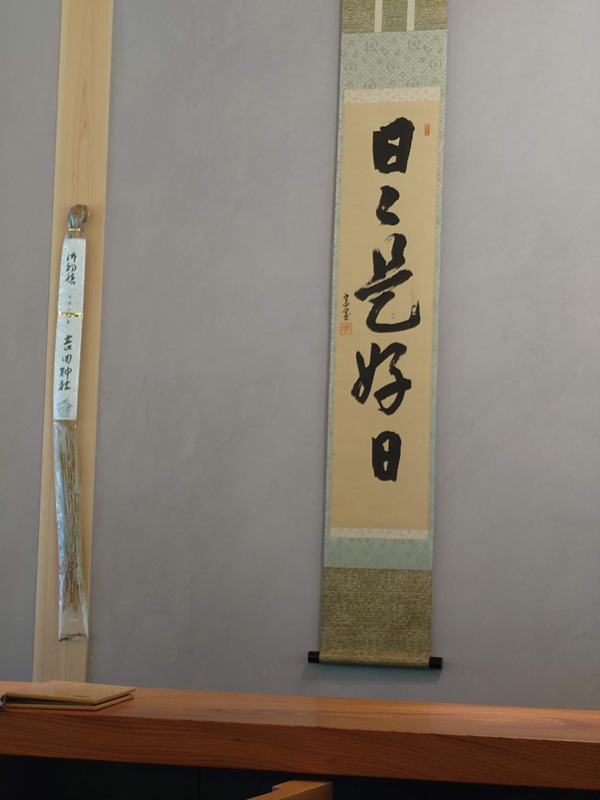 日々是好日
御初穂
吉田神社